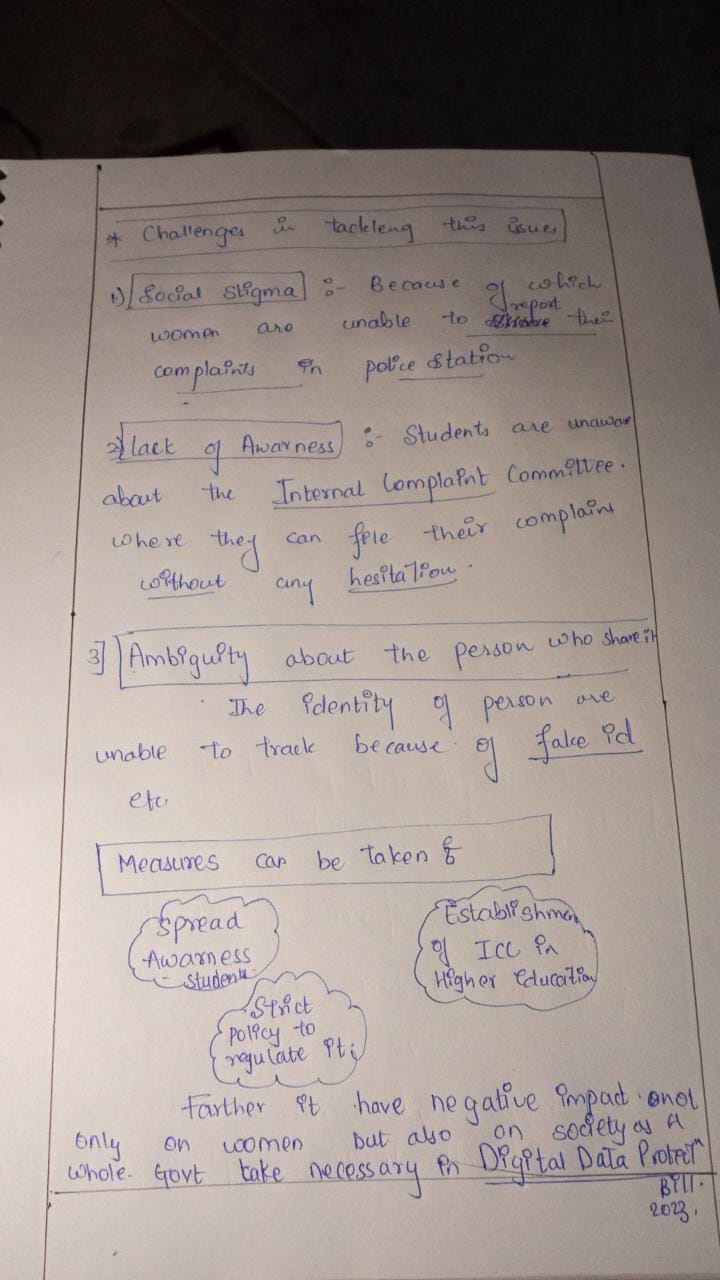 * Challenges in tackleng this issues
1) Social Stigma :- Because of which
women are unable to report their
complaints in police station
2) lack of Awarness :- Students are unaware
about the Internal Complaint Committee.
where they can file their complains
without any hesitation.
3] Ambiguity about the person who share it
The identity of person are
unable to track because of fake id
etc.
Measures can be taken :
Spread
Awarness
- students.
Establishmen
of ICC in
Higher Education
Strict
policy to
regulate it;
Farther it have negative impact not
only on women but also on society as a
whole. Govt take necessary in Digital Data Protectn
Bill.
2023.